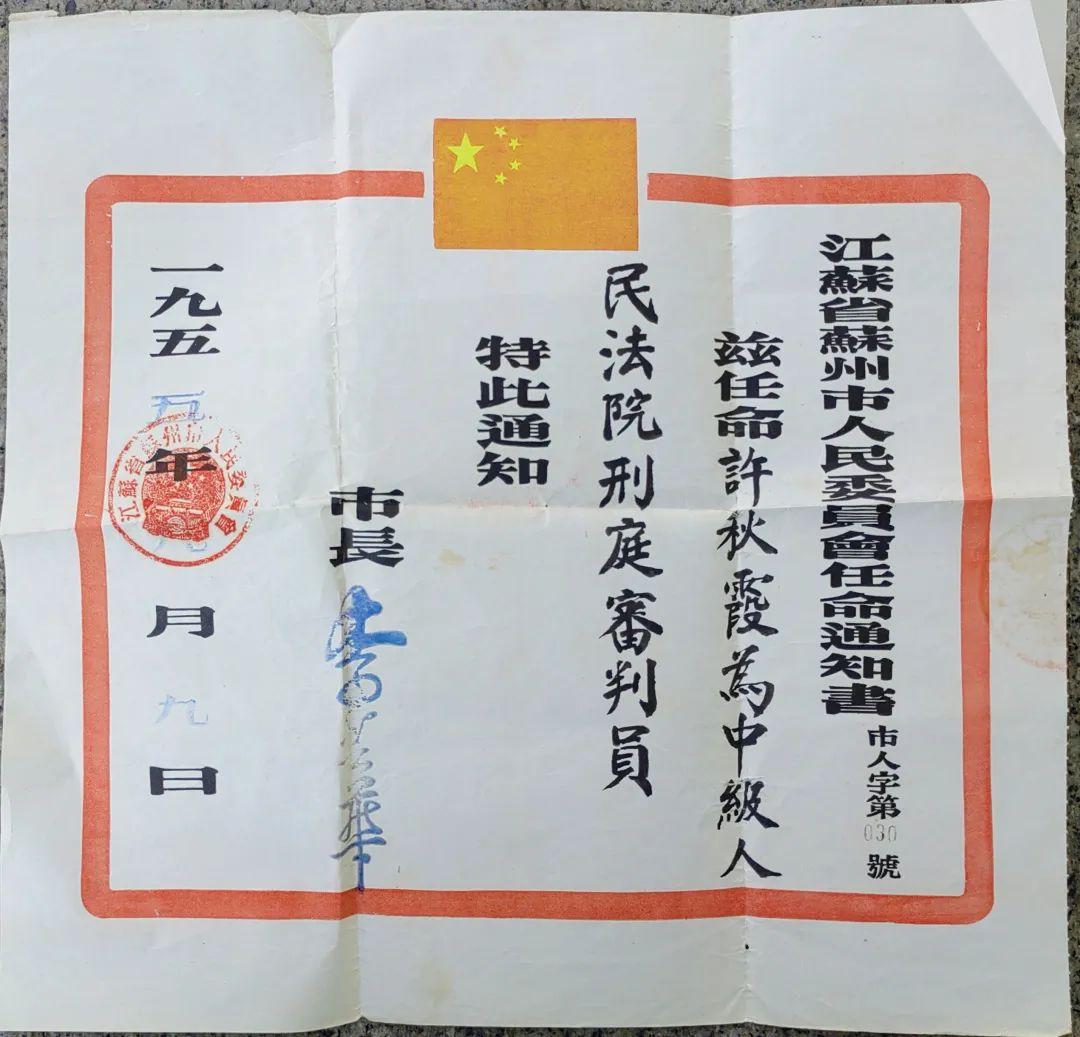 江蘇省蘇州市人民委員會任命通知書
市人字第030號
茲任命許秋霞為中級人
民法院刑庭審判員
特此通知
市長
一九五五年九月九日
江蘇省蘇州市人民委員會